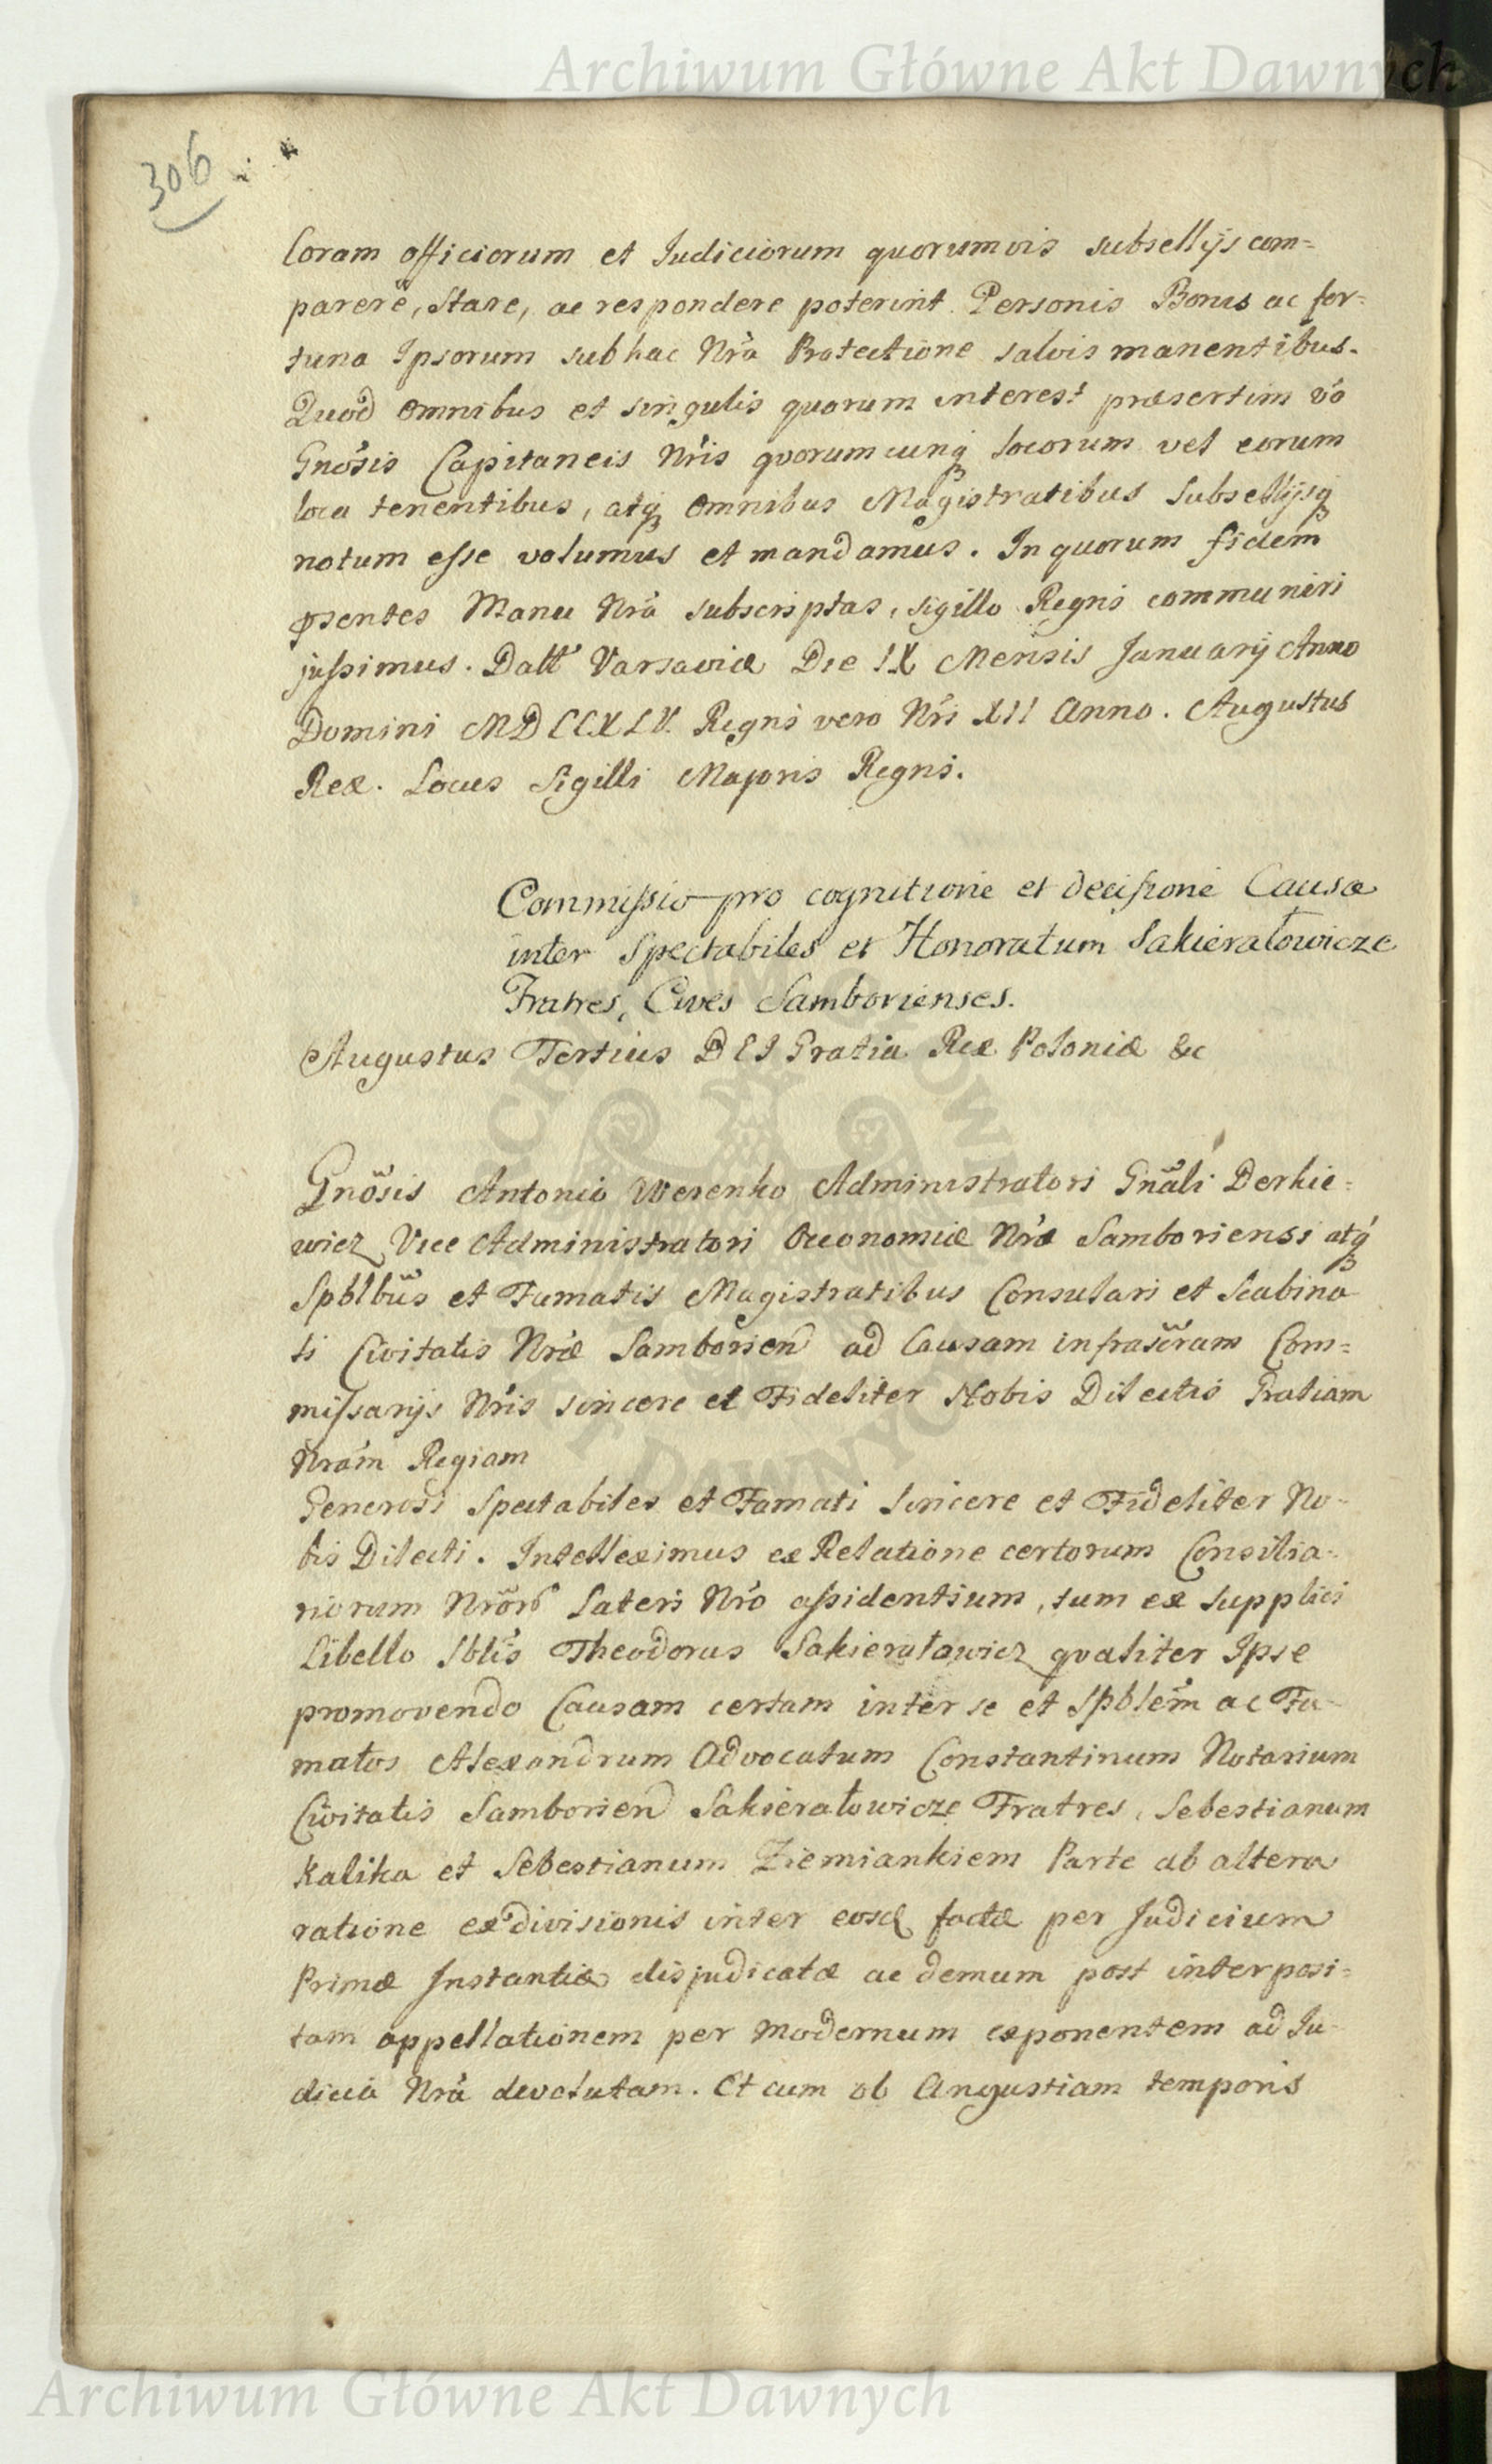 Archiwum Główne Akt Dawnych
306
Coram officiorum et Judiciorum quorumvis subsellijs com=
parere, stare, ac respondere poterint Personis Bonis ac for=
tuna Ipsorum sub hac Nrã Protectione salvis manentibus.
Quod omnibus et singulis quorum interest præsertim võ
Gnõsis Capitaneis Nris quorumcunq locorum vel eorum
loca tenentibus, atq omnibus Magistratibus Subsellijsq
notum esse volumus et mandamus. In quorum fidem
pñsentes Manu Nrã subscriptas, sigillo Regni communiri
jussimus. Datt Varsaviæ Die IX Mensis Januarij Anno
Domini MDCCXLV. Regni vero Nri XII Anno. Augustus
Rex. Locus Sigilli Majoris Regni.
Commissio pro cognitione et decisione Causæ
inter Spectabiles et Honoratum Sakieratowicze
Fratres, Cives Samborienses.
Augustus Tertius DEI Gratia Rex Poloniæ &c
Gnõsis Antonio Wesenko Administratori Gnãli Derkie=
wicz Vice Administratori Œconomiæ Nræ Samboriensi atq
Spblbus et Famatis Magistratibus Consulari et Scabina
li Civitatis Nræ Samborien ad Causam infrascram Com=
missarijs Nris sincere et Fideliter Nobis Dilectis Gratiam
Nram Regiam
Generosi Spectabiles et Famati Sincere et Fideliter No=
bis Dilecti. Intelleximus ex Relatione certorum Consilia=
riorum Nror Lateri Nro assidentium, tum ex supplici
Libello Sblis Theodorus Sakieratowicz qvaliter Ipse
promovendo Causam certam inter se et Spblem ac Fa=
matos Alexandrum Advocatum Constantinum Notarium
Civitatis Samborien Sakieratowicze Fratres, Sebestianum
Kalika et Sebestianum Ziemiankiem Parte ab altera
ratione exdivisionis inter eosd factæ per Judicium
Primæ Instantiæ disjudicatæ ac demum post interposi=
tam appellationem per modernum exponentem ad Ju=
dicia Nra devolutam. Et cum ob Angustiam temporis
Archiwum Główne Akt Dawnych